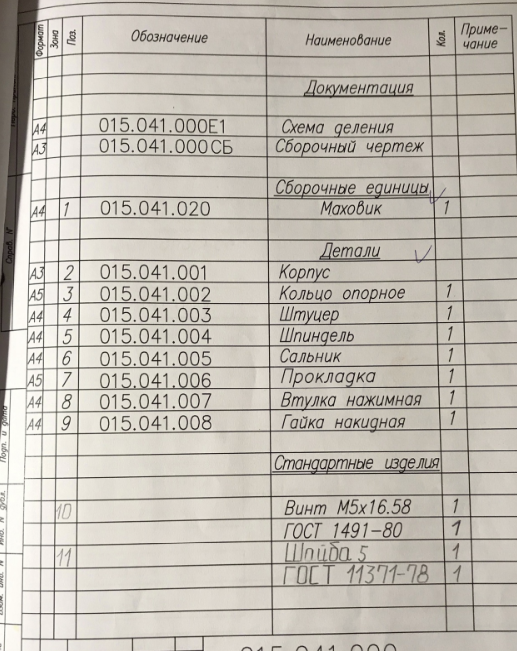 Формат Зона Поз. Обозначение Наименование Кол. Приме-
чание
Документация
А4 015.041.000Е1 Схема деления
А3 015.041.000СБ Сборочный чертеж
Сборочные единицы
А4 1 015.041.020 Маховик 1
Детали
А3 2 015.041.001 Корпус
А5 3 015.041.002 Кольцо опорное 1
А4 4 015.041.003 Штуцер 1
А4 5 015.041.004 Шпиндель 1
А4 6 015.041.005 Сальник 1
А5 7 015.041.006 Прокладка 1
А4 8 015.041.007 Втулка нажимная 1
А4 9 015.041.008 Гайка накидная 1
Стандартные изделия
10 Винт М5х16.58 1
ГОСТ 1491-80 1
11 Шайба 5 1
ГОСТ 11371-78 1
Справ. N
Подп. и дата
Инв. N дубл.
Взам. инв. N
015.041.000